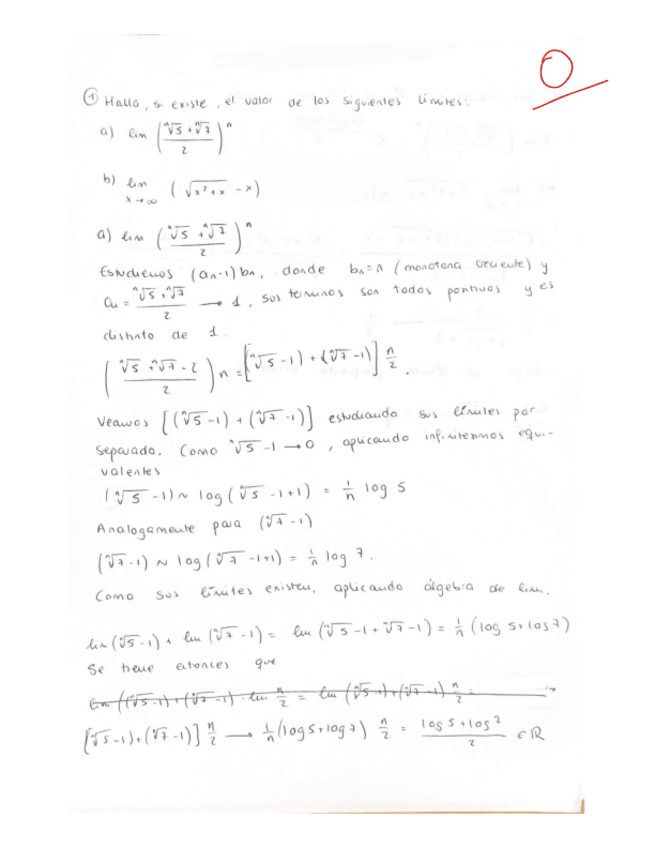 0
① Halla, si existe, el valor de los siguientes límites:
a) lim ((ⁿ√5 + ⁿ√7)/2)ⁿ
b) lim x→∞ (√(x²+x) - x)
a) lim ((ⁿ√5 + ⁿ√7)/2)ⁿ
Estudiemos (an-1) bn, donde bn=n (monotona creciente) y
an = (ⁿ√5 + ⁿ√7)/2 → 1, sus terminos son todos positivos y es
distinto de 1.
((ⁿ√5 + ⁿ√7 - 2)/2) n = [(ⁿ√5 - 1) + (ⁿ√7 - 1)] n/2.
Veamos [(ⁿ√5 - 1) + (ⁿ√7 - 1)] estudiando sus límites por
separado. Como ⁿ√5 - 1 → 0, aplicando infinitesimos equi-
valentes
(ⁿ√5 - 1) ~ log (ⁿ√5 - 1 + 1) = 1/n log 5
Analogamente para (ⁿ√7 - 1)
(ⁿ√7 - 1) ~ log (ⁿ√7 - 1 + 1) = 1/n log 7.
Como sus límites existen, aplicando álgebra de lim.
lim (ⁿ√5 - 1) + lim (ⁿ√7 - 1) = lim (ⁿ√5 - 1 + ⁿ√7 - 1) = 1/n (log 5 + log 7)
Se tiene entonces que
lim ((ⁿ√5 - 1) + (ⁿ√7 - 1)) · lim n/2 = lim (ⁿ√5 - 1) + (ⁿ√7 - 1) n/2 =
[(ⁿ√5 - 1) + (ⁿ√7 - 1)] n/2 → 1/n (log 5 + log 7) n/2 = (log 5 + log 7)/2 ∈ ℝ